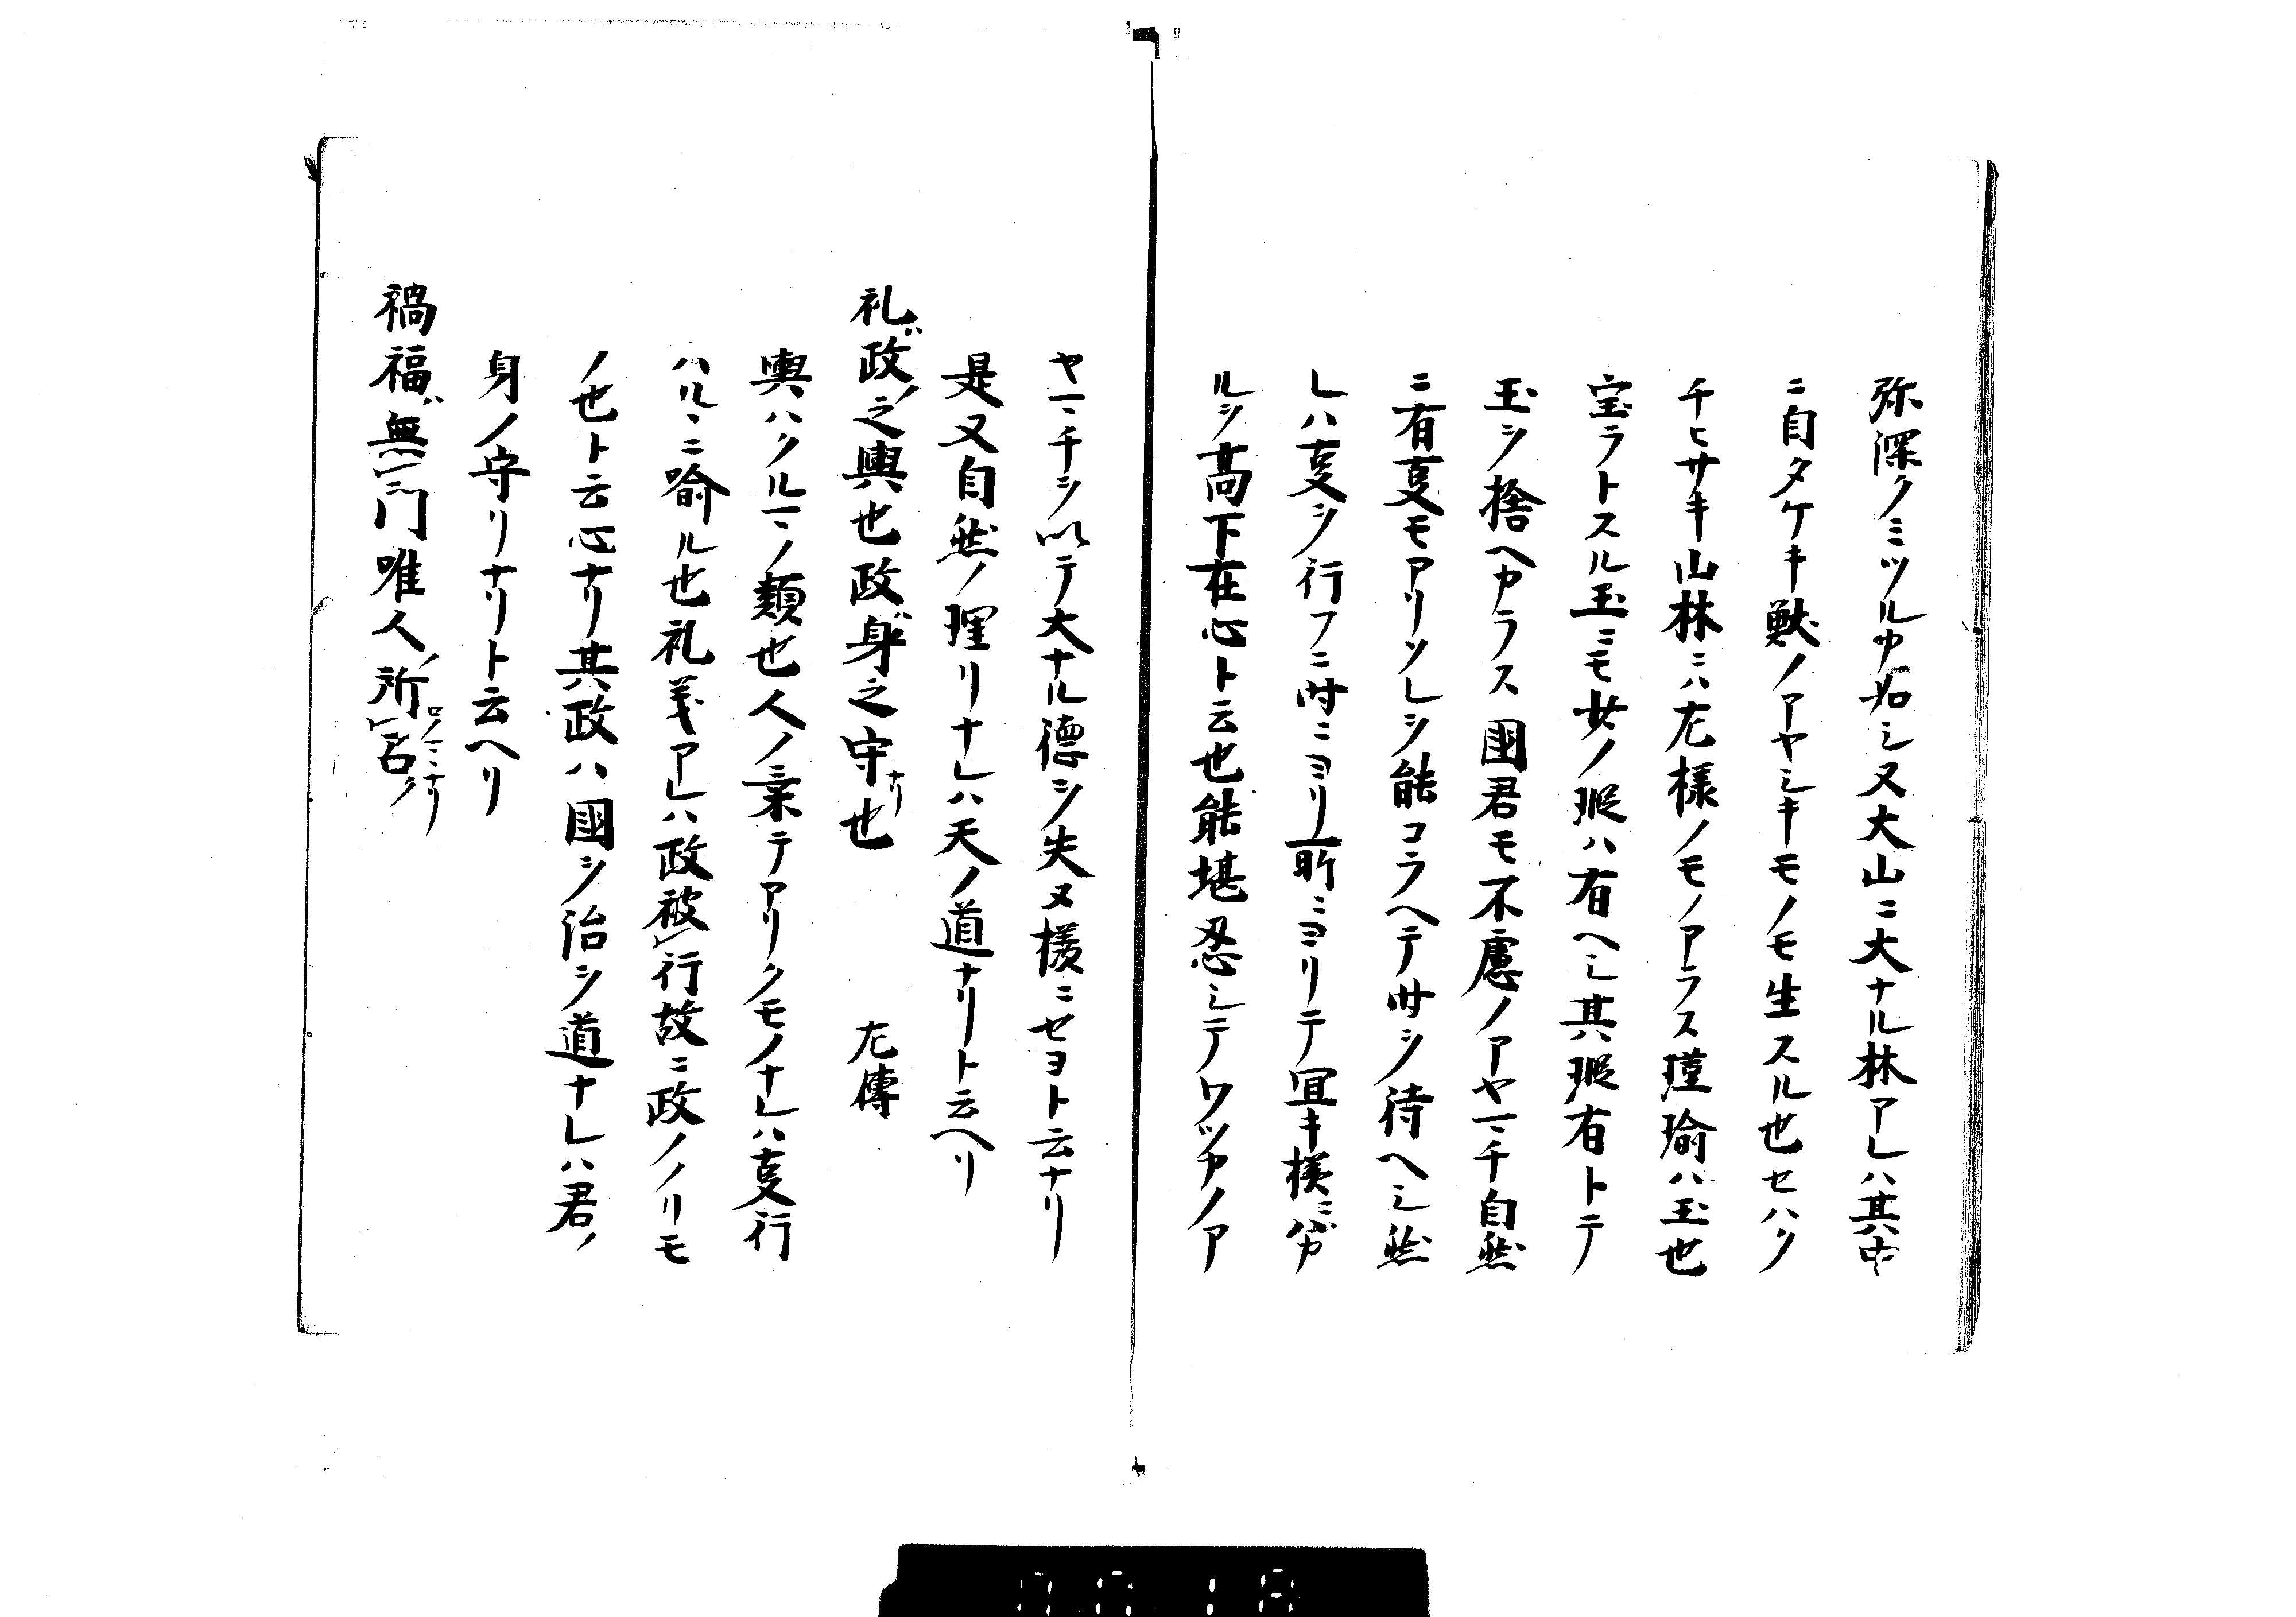 弥深クミツルカ如シ又大山ニ大ナル林アレハ其中
ニ自タケキ獣ノアヤシキモノモ生スル也セハク
チヒサキ山林ニハ左様ノモノアラス瑾瑜ハ玉也
宝ラトスル玉ニモ女ノ瑕ハ有ヘシ其瑕有トテ
玉ヲ捨ヘカラス國君モ不慮ノアヤマチ自然
ニ有㕝モアリソレヲ能コラヘテ時ヲ待ヘシ然
レハ㕝ヲ行フニ時ニヨリ所ニヨリテ宜キ様ニハカ
ルヲ髙下在心ト云也能堪忍シテワツカノア
ヤマチヲ以テ大ナル德ヲ失ヌ様ニセヨト云ナリ
是又自然ノ理リナレハ天ノ道ナリト云ヘリ
礼政之輿也政身之守也 左傳
輿ハクルマノ類也人ノ乗テアリクモノナレハ㕝行
ハルヽニ喩ル也礼義アレハ政被行故ニ政ノノリモ
ノ也ト云心ナリ其政ハ國ヲ治ヲ道ナレハ君ノ
身ノ守リナリト云ヘリ
禍福無門唯人所召